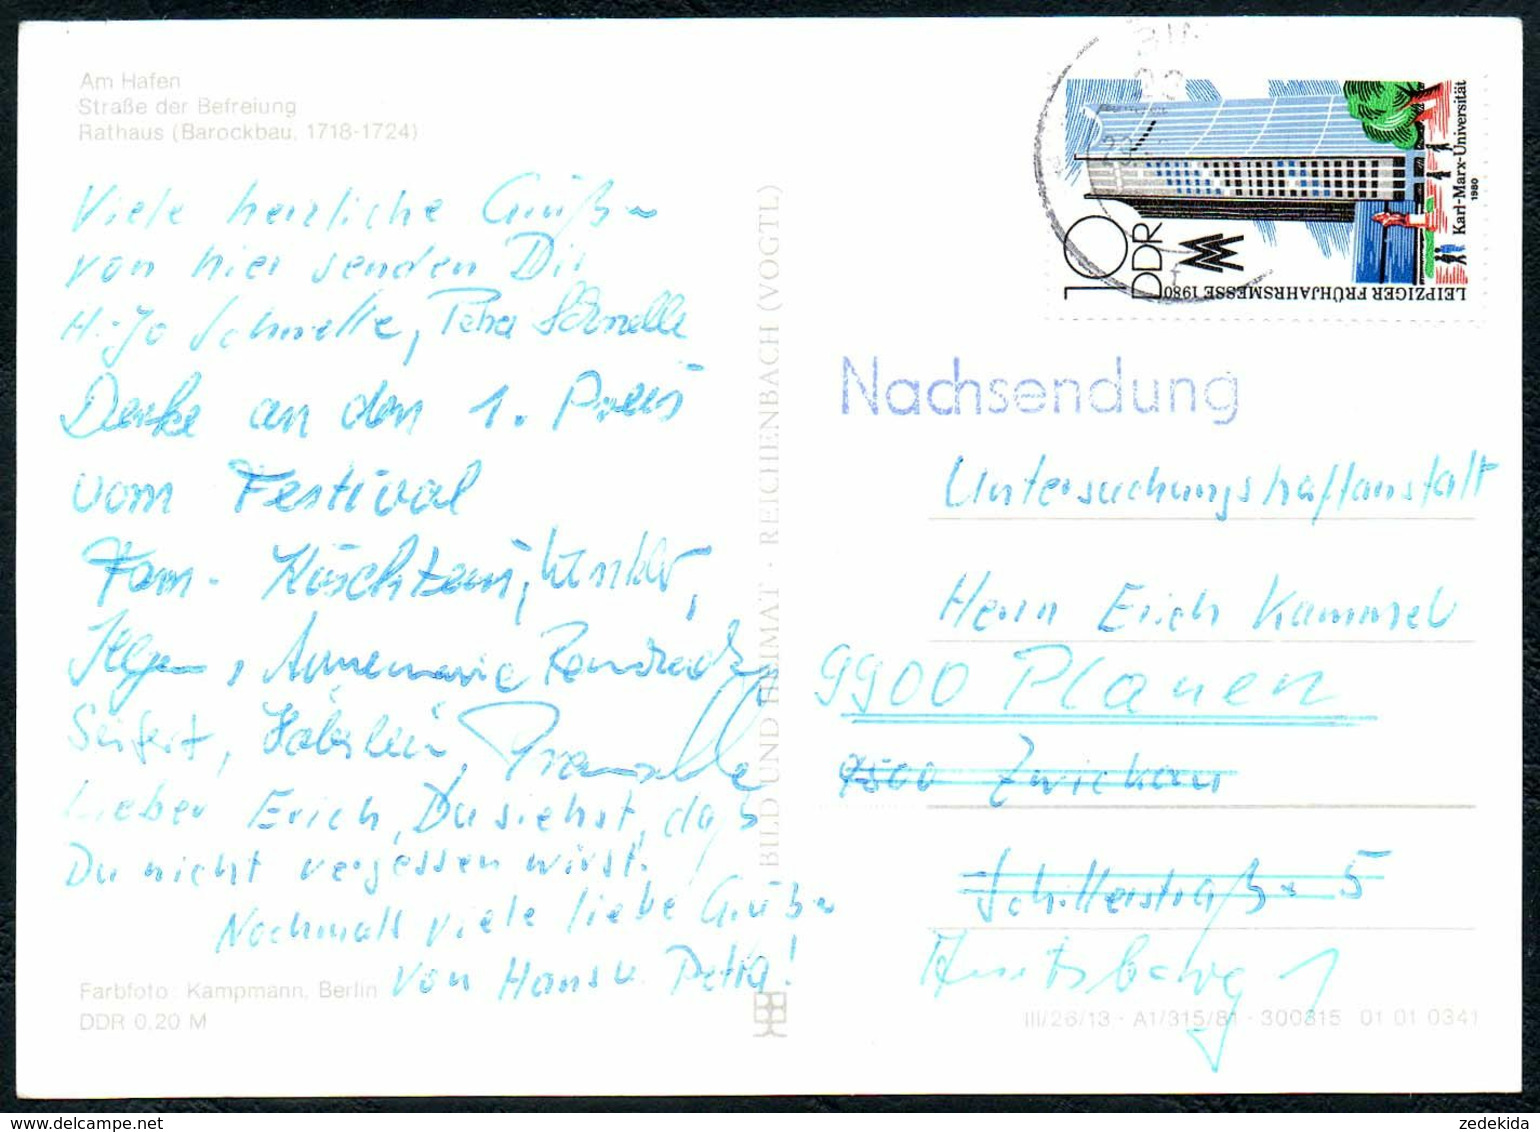 Am Hafen
Straße der Befreiung
Rathaus (Barockbau, 1718-1724)
Viele herzliche Grüße
von hier senden Dir
H.-Jo Schnelle, Petra Schnelle
Denke an den 1. Preis
vom Festival
Fam.
Annemarie
Seifert, Häberlein,
Lieber Erich, Du siehst, daß
Du nicht vergessen wirst.
Nochmals viele liebe Grüße
von Hans u. Petra!
Farbfoto: Kampmann, Berlin
DDR 0,20 M
BILD UND HEIMAT · REICHENBACH (VOGTL)
10
DDR
LEIPZIGER FRÜHJAHRSMESSE 1980
Karl-Marx-Universität
1980
Nachsendung
Untersuchungshaftanstalt
Herrn Erich Kammsel
9900 Plauen
9500 Zwickau
Schillerstraße 5
Amtsberg 1
III/26/13 · A1/315/81 · 300815 01 01 0341
zedekida